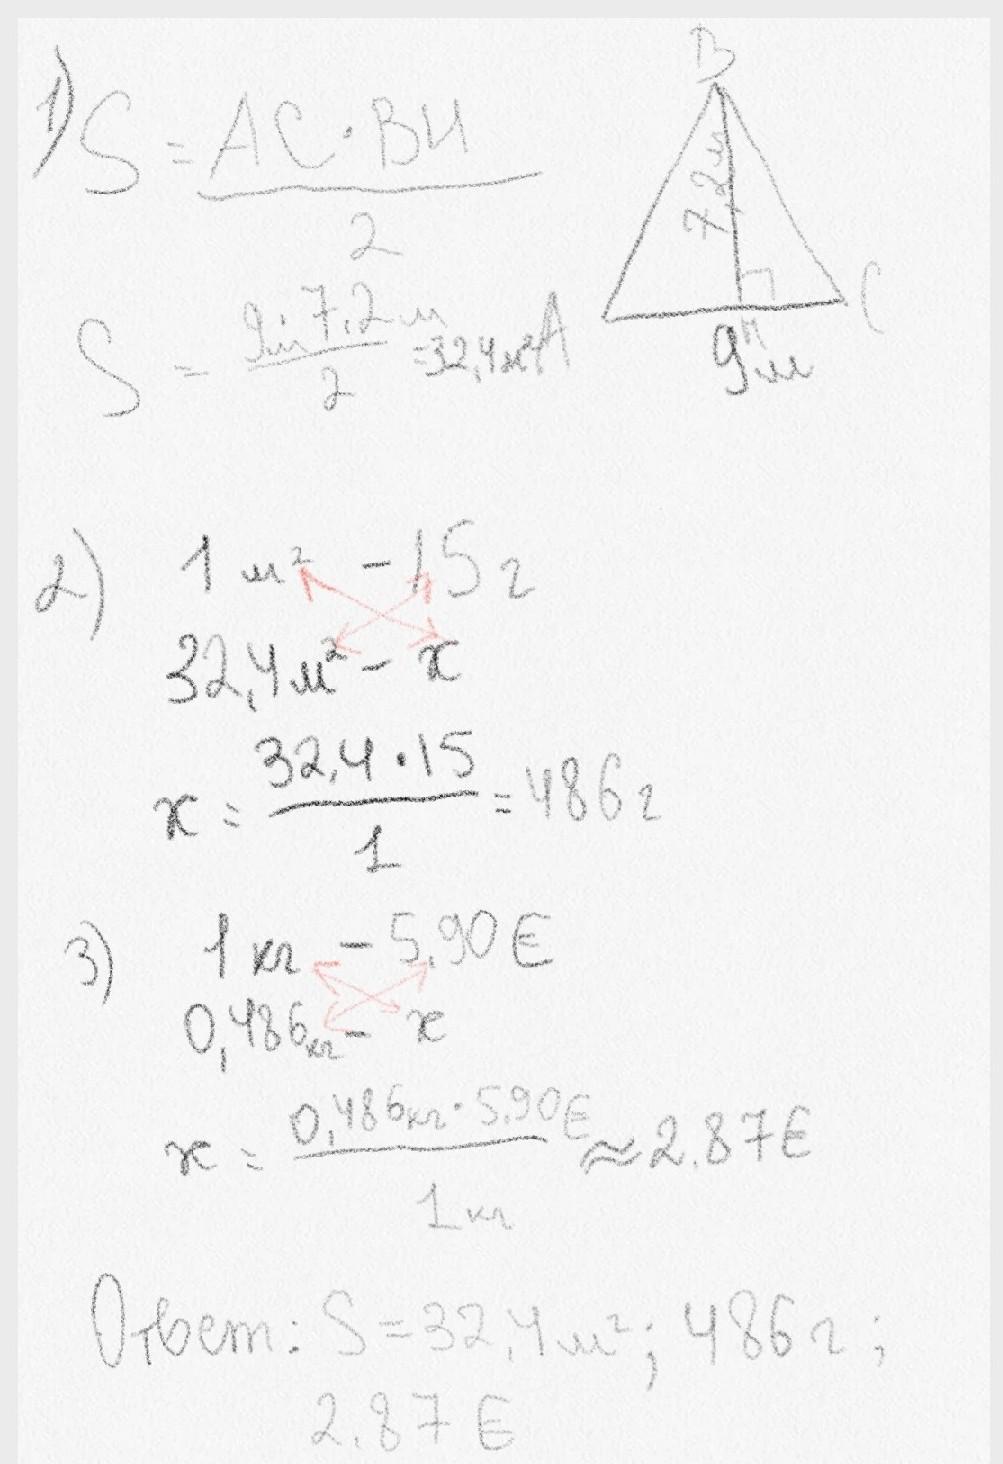 B
1) S = AC·BH / 2
7,2 м
C
S = 9м·7,2м / 2 = 32,4 м² A
H
9 м
2) 1 м² – 15 г
32,4 м² – x
x = 32,4·15 / 1 = 486 г
3) 1 кг – 5,90 €
0,486 кг – x
x = 0,486кг·5,90€ / 1 кг ≈ 2.87 €
Ответ: S = 32,4 м²; 486 г;
2.87 €